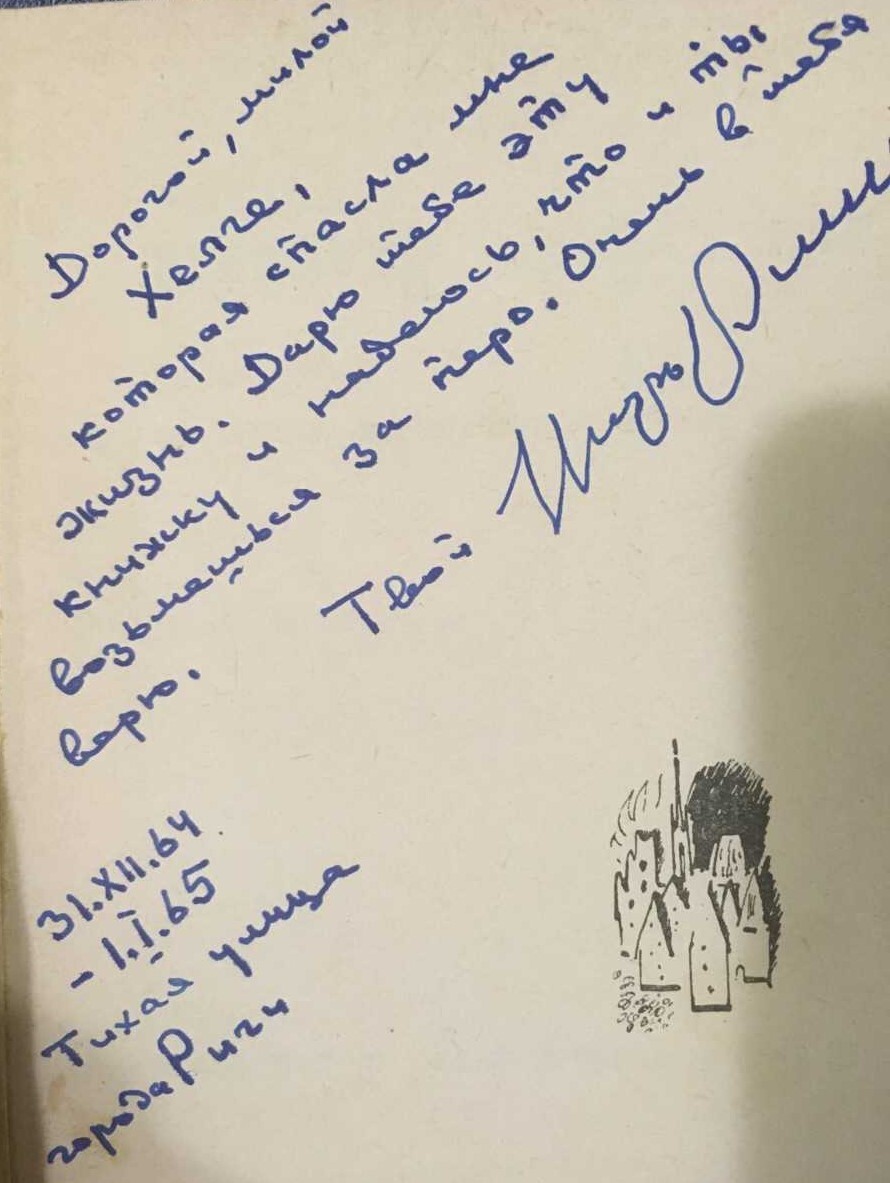 Дорогой, милой
Хелге,
которая спасла мне
жизнь. Дарю тебе эту
книжку и надеюсь, что и ты
возьмешься за перо. Очень в тебя
верю. Твой
31.XII.64
- 1.I.65
Тихая улица
города Риги